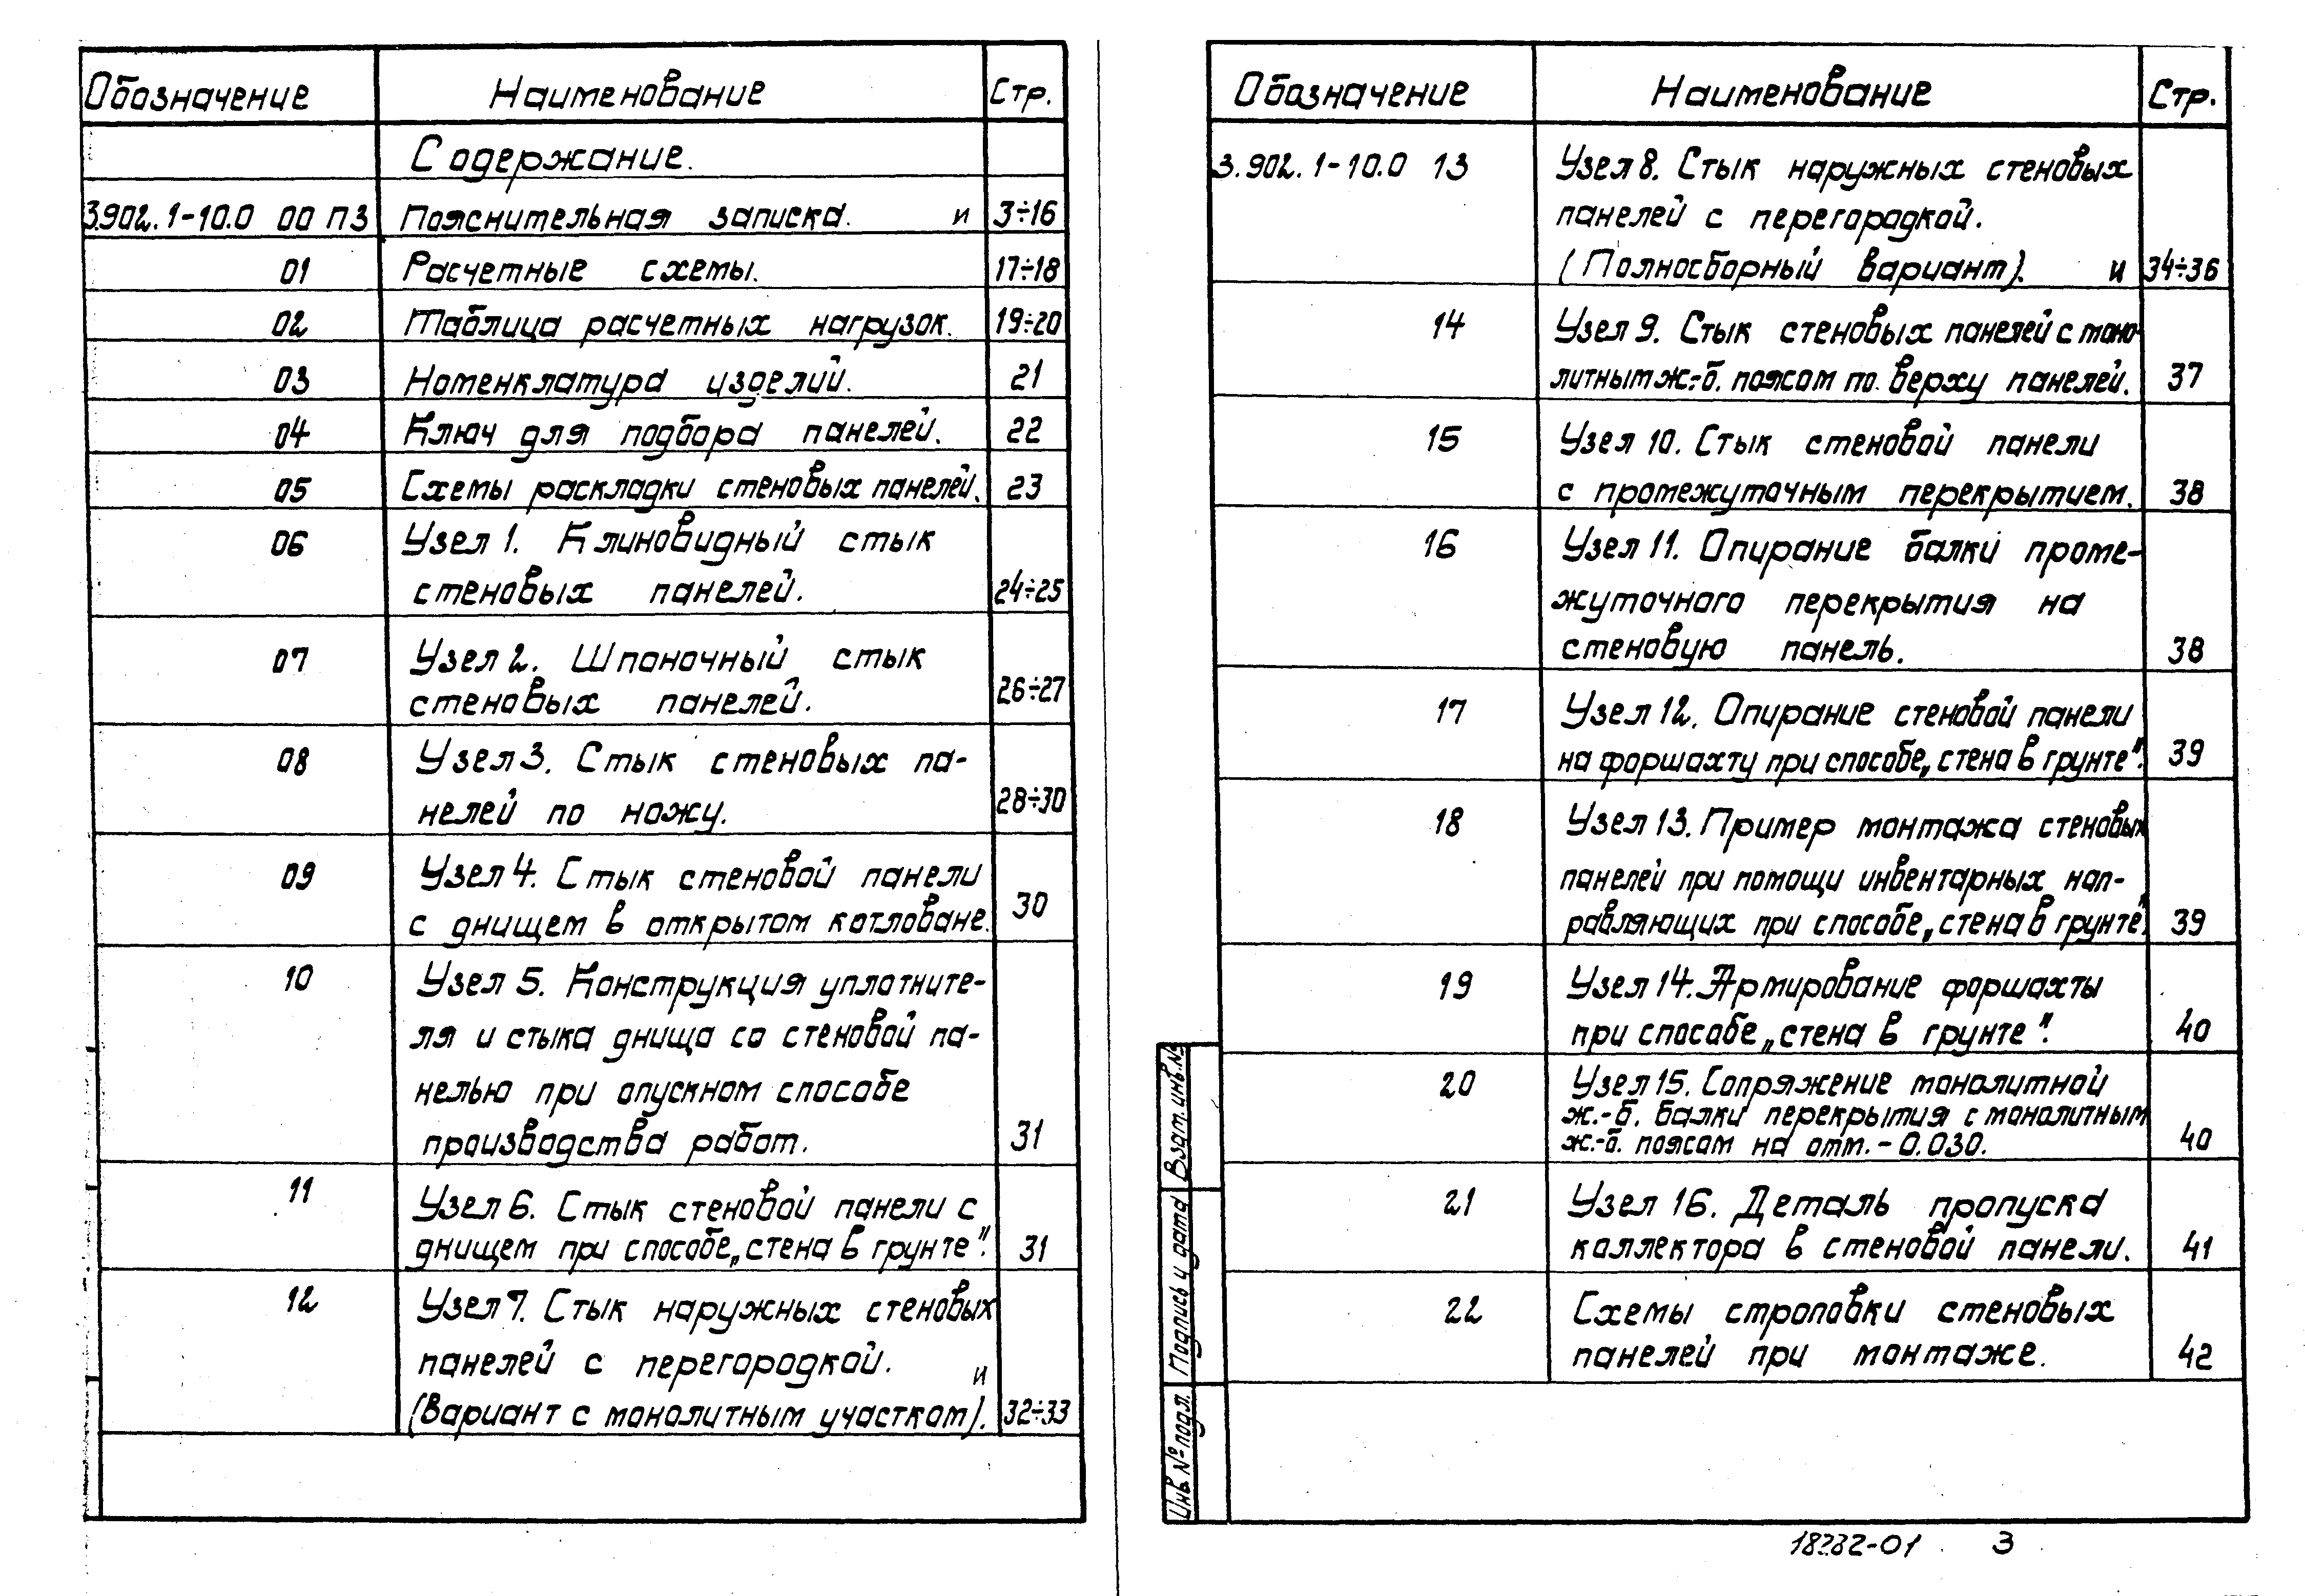 Обозначение Наименование Стр.
Содержание.
3.902.1-10.0 00 ПЗ Пояснительная записка. и 3÷16
01 Расчетные схемы. 17÷18
02 Таблица расчетных нагрузок. 19÷20
03 Номенклатура изделий. 21
04 Ключ для подбора панелей. 22
05 Схемы раскладки стеновых панелей. 23
06 Узел 1. Клиновидный стык
стеновых панелей. 24÷25
07 Узел 2. Шпоночный стык
стеновых панелей. 26÷27
08 Узел 3. Стык стеновых па-
нелей по ножу. 28÷30
09 Узел 4. Стык стеновой панели
с днищем в открытом котловане. 30
10 Узел 5. Конструкция уплотните-
ля и стыка днища со стеновой па-
нелью при опускном способе
производства работ. 31
11 Узел 6. Стык стеновой панели с
днищем при способе „стена в грунте". 31
12 Узел 7. Стык наружных стеновых
панелей с перегородкой. и
(Вариант с монолитным участком). 32÷33
Обозначение Наименование Стр.
3.902.1-10.0 13 Узел 8. Стык наружных стеновых
панелей с перегородкой.
(Полносборный вариант). и 34÷36
14 Узел 9. Стык стеновых панелей с моно-
литным ж.-б. поясом по верху панелей. 37
15 Узел 10. Стык стеновой панели
с промежуточным перекрытием. 38
16 Узел 11. Опирание балки проме-
жуточного перекрытия на
стеновую панель. 38
17 Узел 12. Опирание стеновой панели
на форшахту при способе „стена в грунте". 39
18 Узел 13. Пример монтажа стеновых
панелей при помощи инвентарных нап-
равляющих при способе „стена в грунте". 39
19 Узел 14. Армирование форшахты
при способе „стена в грунте". 40
20 Узел 15. Сопряжение монолитной
ж.-б. балки перекрытия с монолитным
ж.-б. поясом на отм. -0.030. 40
21 Узел 16. Деталь пропуска
коллектора в стеновой панели. 41
22 Схемы строповки стеновых
панелей при монтаже. 42
Взам. инв. №
Подпись и дата
Инв. № подл.
18282-01 3